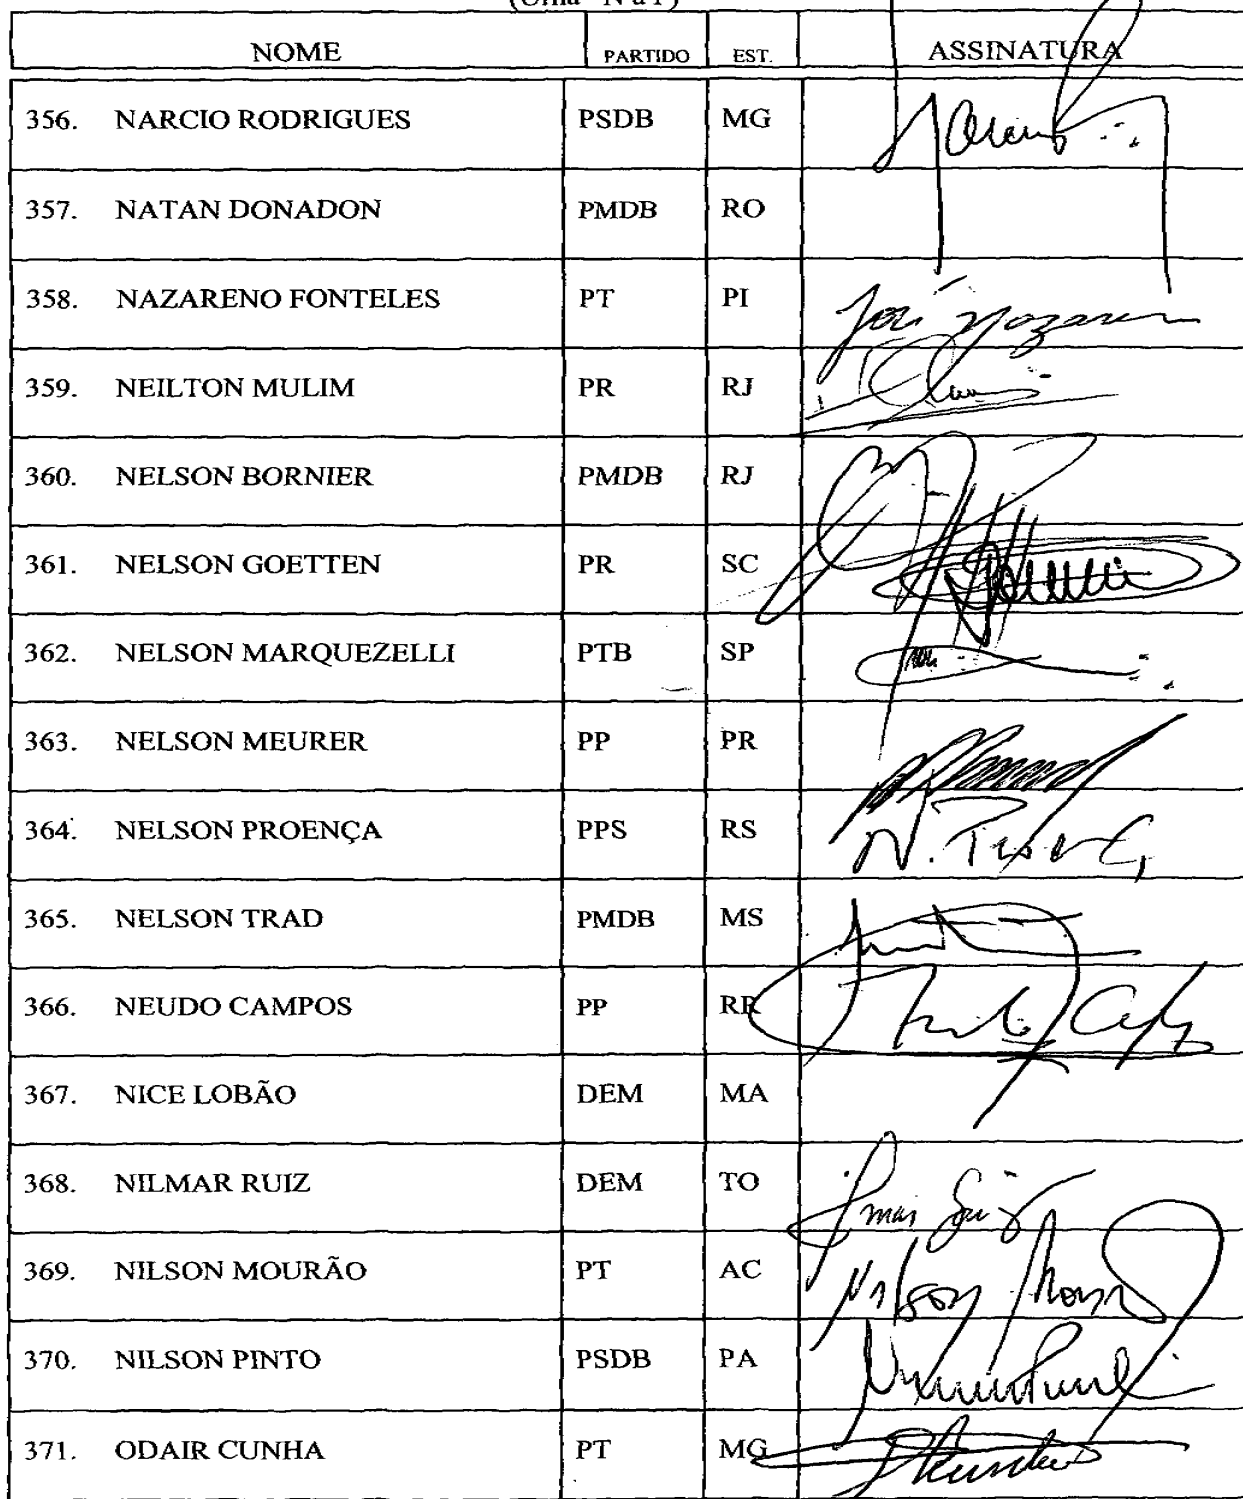 NOME PARTIDO EST. ASSINATURA
356. NARCIO RODRIGUES PSDB MG
357. NATAN DONADON PMDB RO
358. NAZARENO FONTELES PT PI José Nazareno
359. NEILTON MULIM PR RJ
360. NELSON BORNIER PMDB RJ
361. NELSON GOETTEN PR SC
362. NELSON MARQUEZELLI PTB SP
363. NELSON MEURER PP PR
364. NELSON PROENÇA PPS RS
365. NELSON TRAD PMDB MS
366. NEUDO CAMPOS PP RR
367. NICE LOBÃO DEM MA
368. NILMAR RUIZ DEM TO
369. NILSON MOURÃO PT AC Nilson
370. NILSON PINTO PSDB PA
371. ODAIR CUNHA PT MG